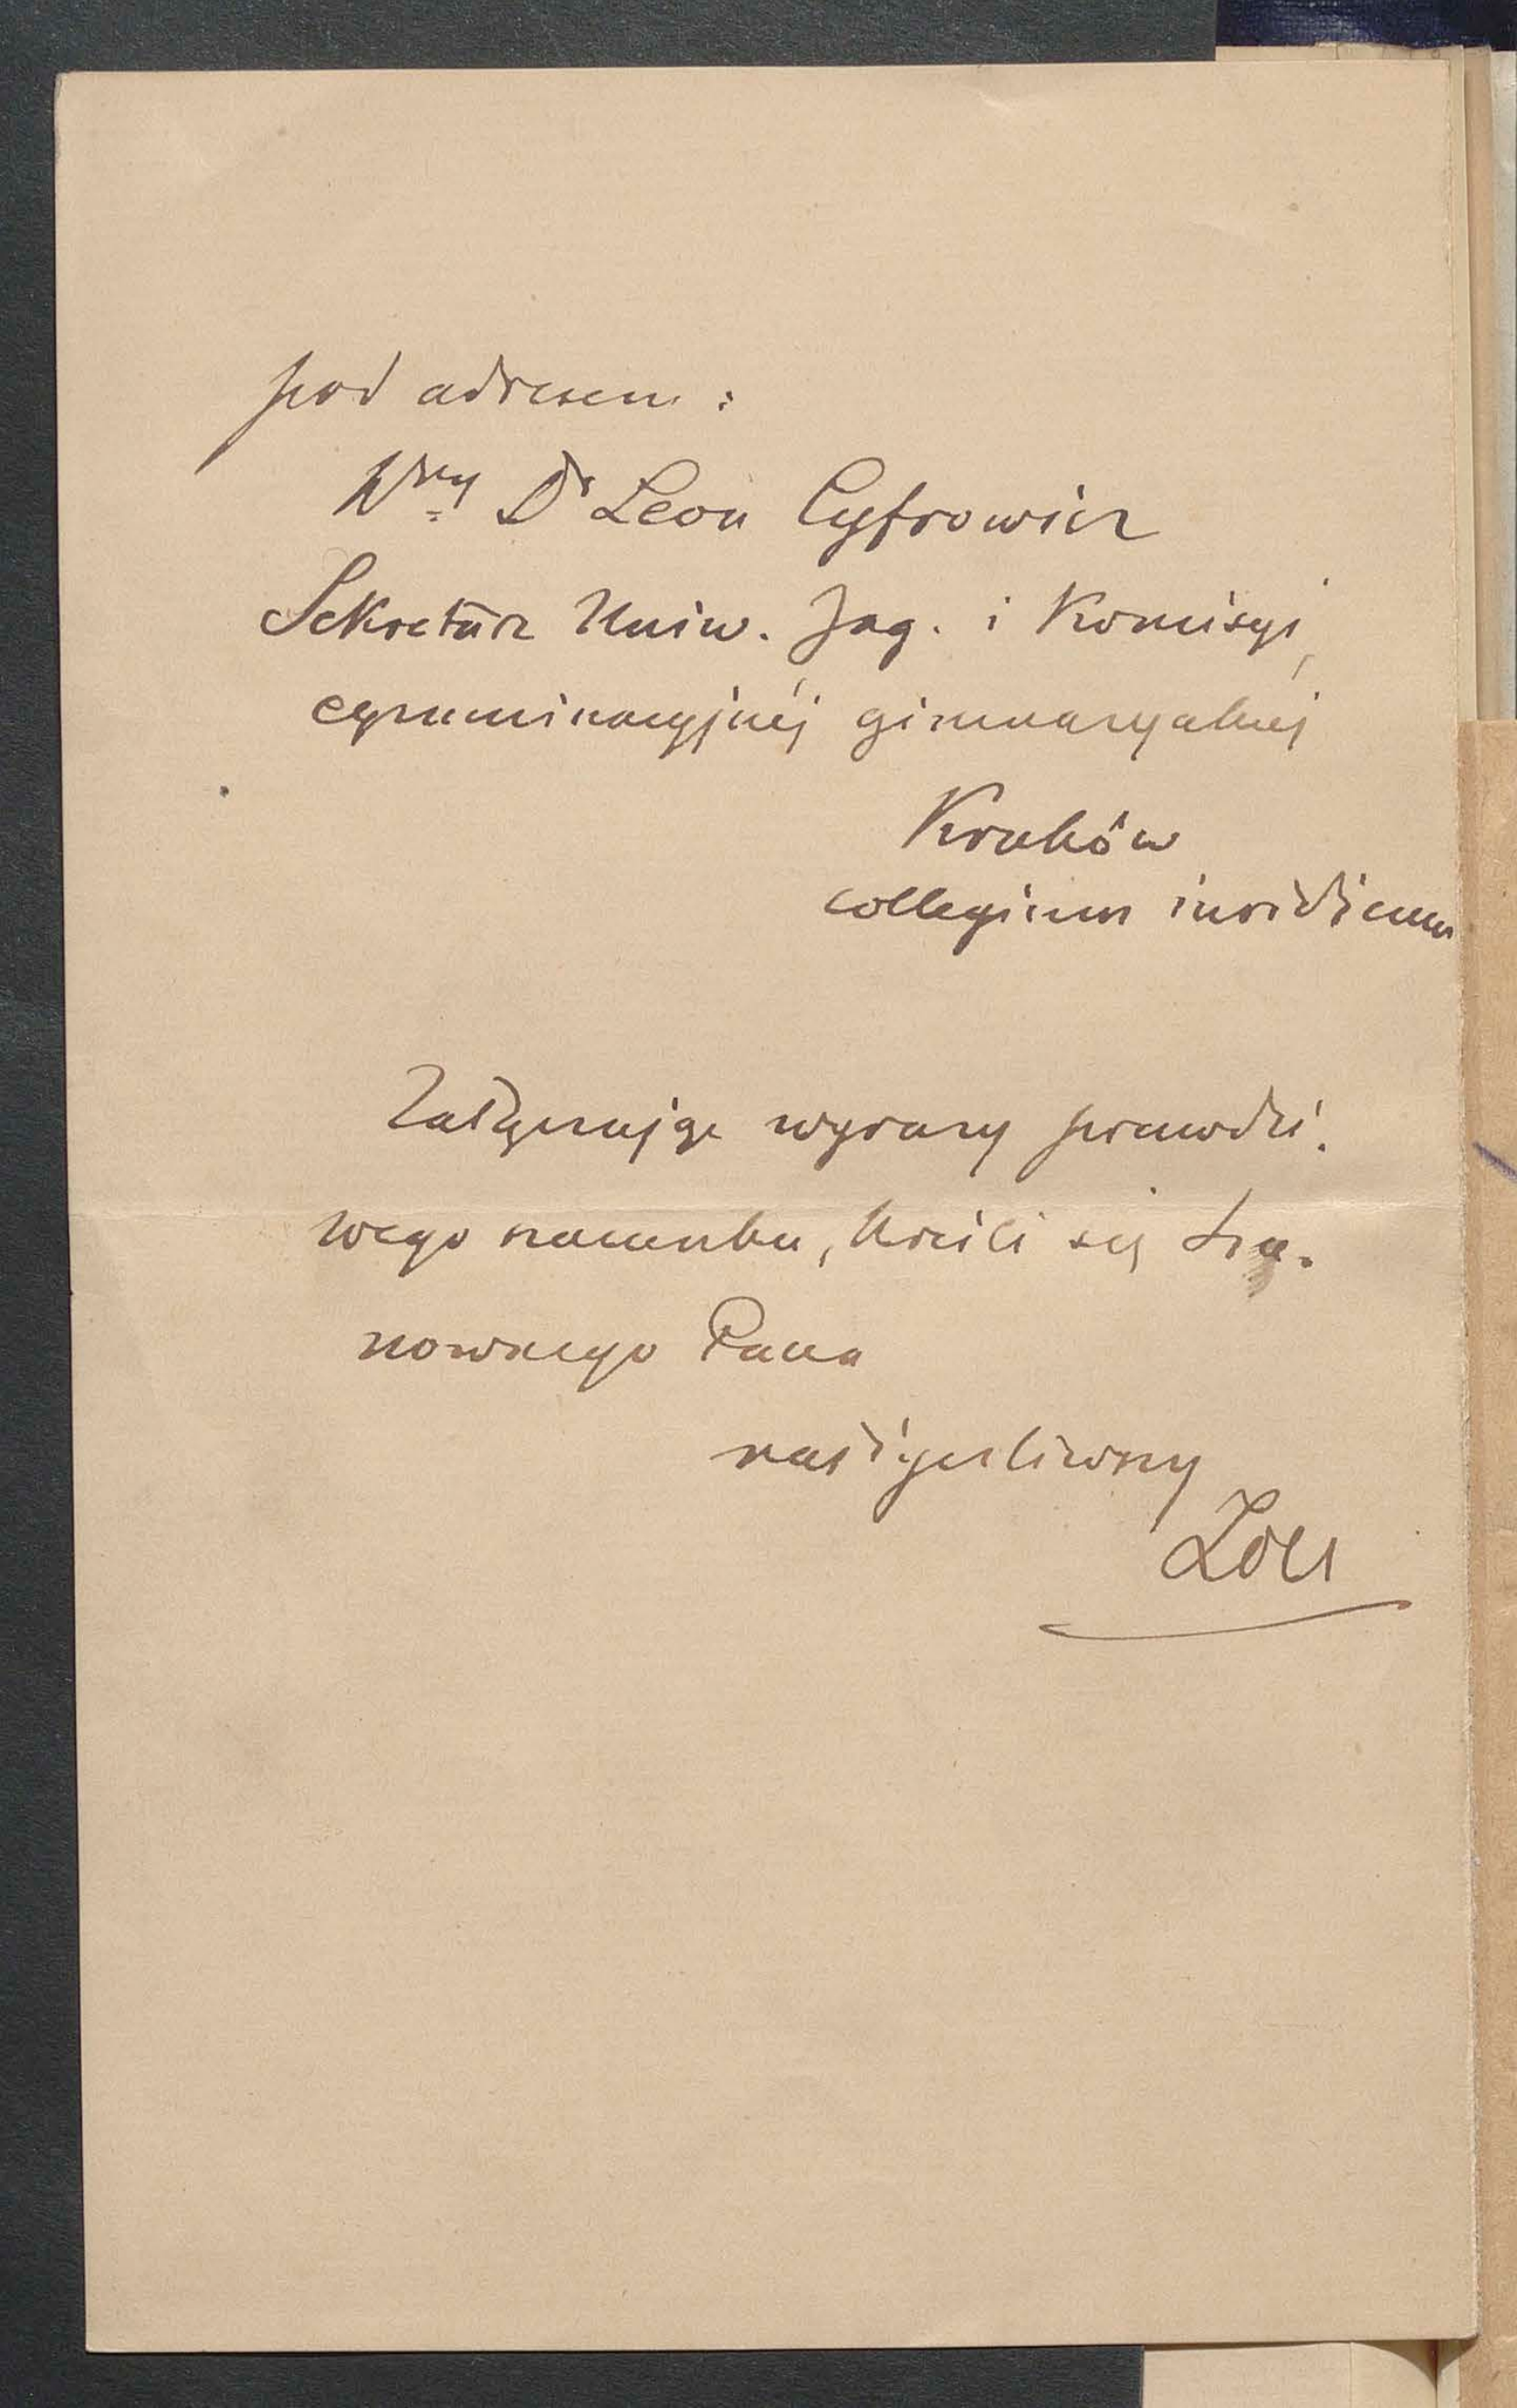 pod adresem:
Wny Dr Leon Cyfrowicz
Sekretarz Uniw. Jag. i Komisyi
egzaminacyjnéj gimnazyalnéj
Kraków
collegium iuridicum
Załączając wyrazy prawdzi-
wego szacunku, kreśli się Sza-
nownego Pana
życzliwy
Zoll